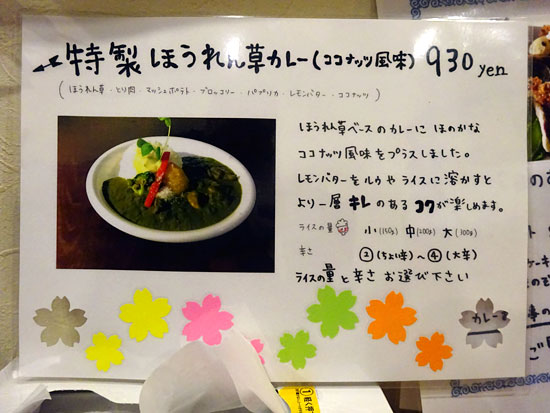 特製 ほうれん草カレー(ココナッツ風味) 930 yen
(ほうれん草・とり肉・マッシュポテト・ブロッコリー・パプリカ・レモンバター・ココナッツ)
ほうれん草ベースのカレーに ほのかな
ココナッツ風味をプラスしました。
レモンバターをルゥやライスに溶かすと
より一層 キレのある コクが楽しめます。
ライスの量 小(150g) 中(200g) 大(300g)
辛さ ②(ちょい辛)~④(大辛)
ライスの量と辛さ お選び下さい
カレー